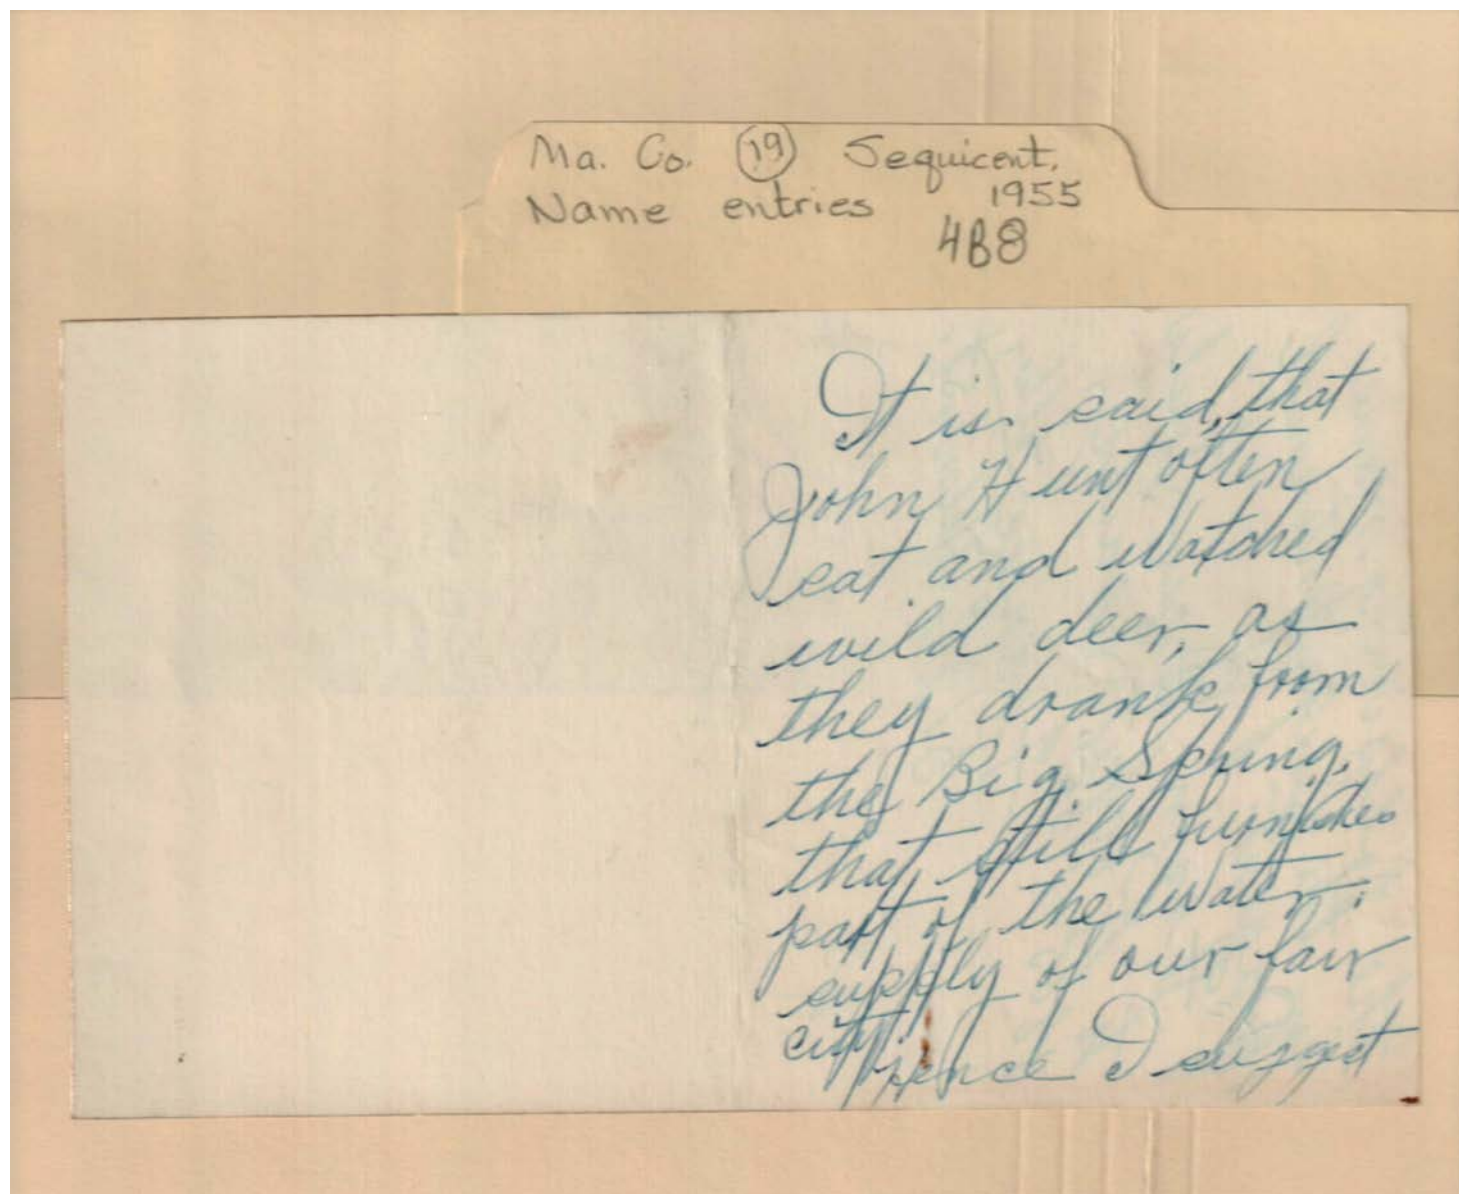 Ma. Co. 19 Sequicent.
Name entries 1955
4B8
It is said, that
John Hunt often
sat and watched
wild deer, as
they drank from
the Big Spring,
that still furnishes
part of the water
supply of our fair
city, hence I suggest